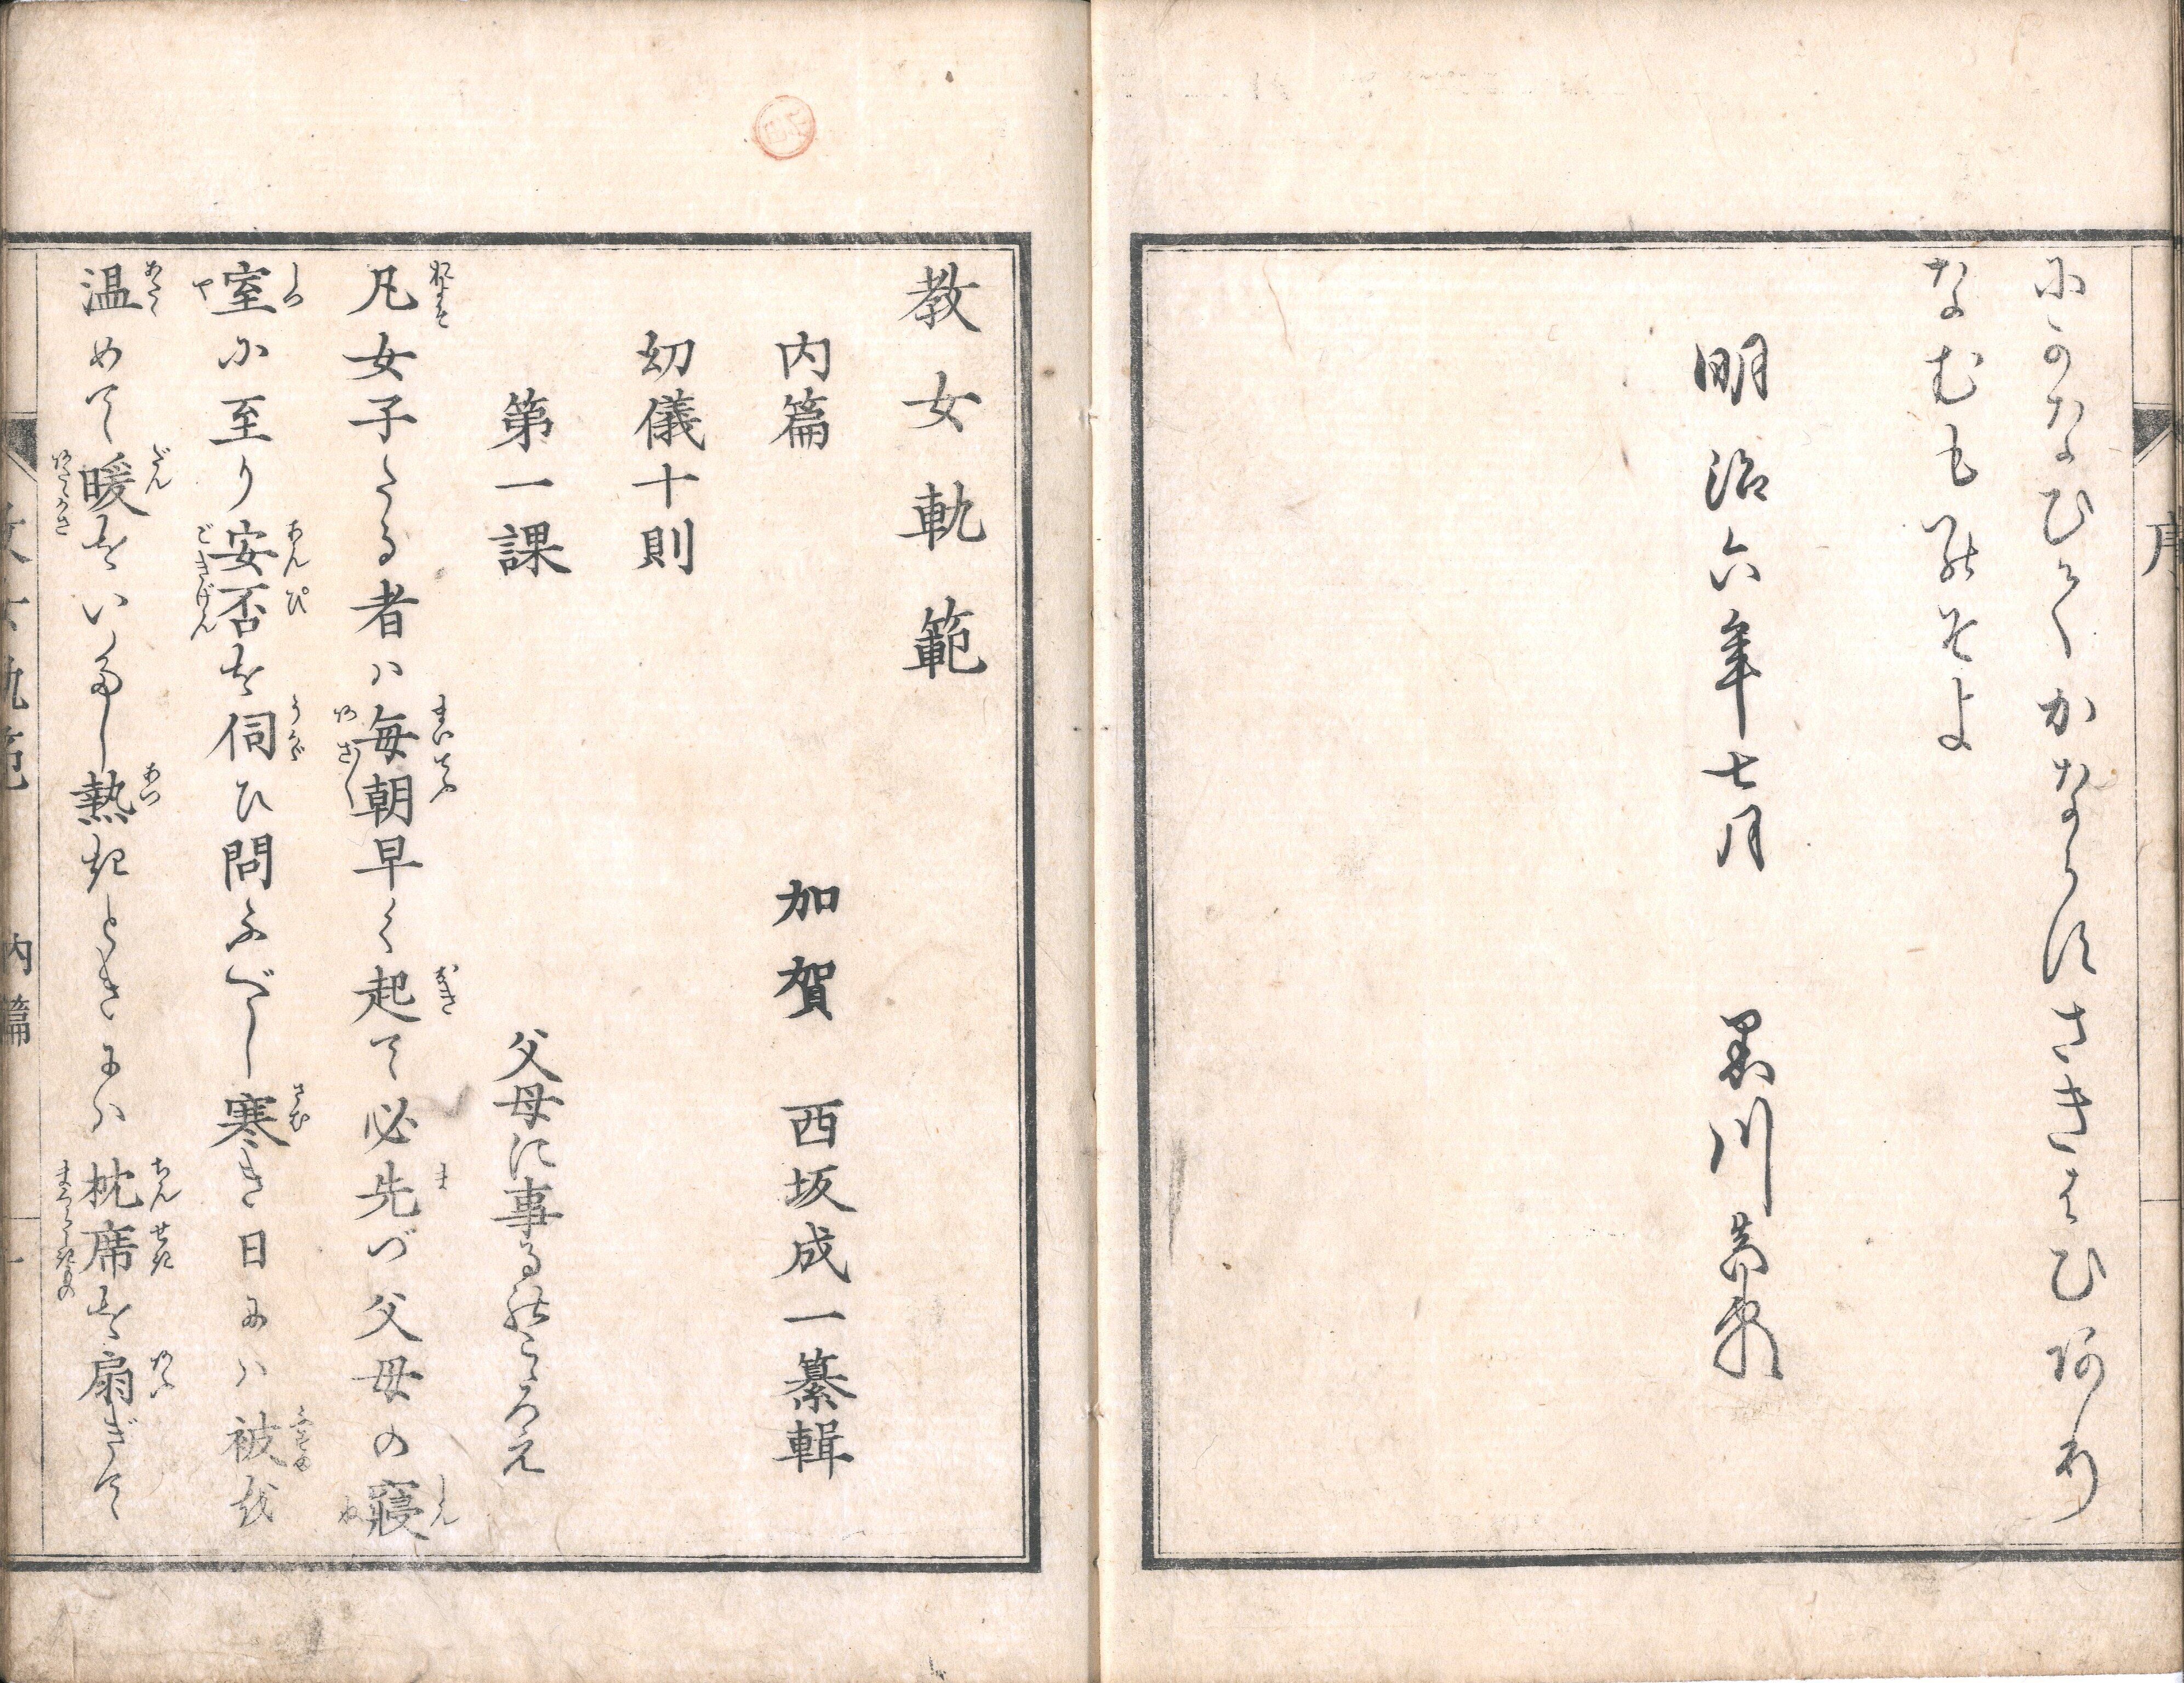 にかなひてかならすさきはひあり
なむものそよ
明治六年七月 黒川真頼
序
教女軌範
内篇 加賀 西坂成一纂輯
幼儀十則
第一課
父母に事るのこゝろえ
凡女子たる者ハ毎朝早く起て必先づ父母の寝
室に至り安否を伺ひ問ふべし寒き日にハ被を
温めて暖をいたし熱きときにハ枕席を扇ぎて
教女軌範 内篇 一